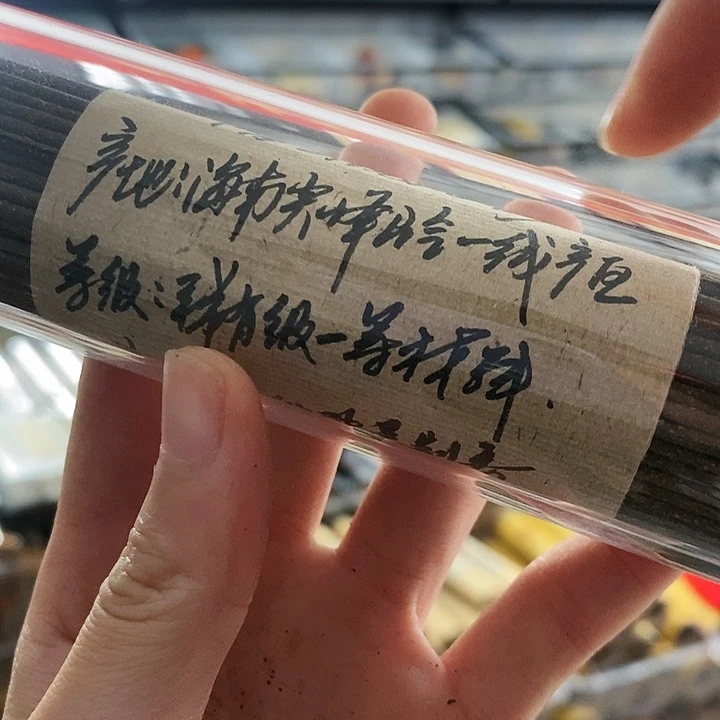 产地:海南尖峰岭一线产区
等级:稀有级一等材料.
制香